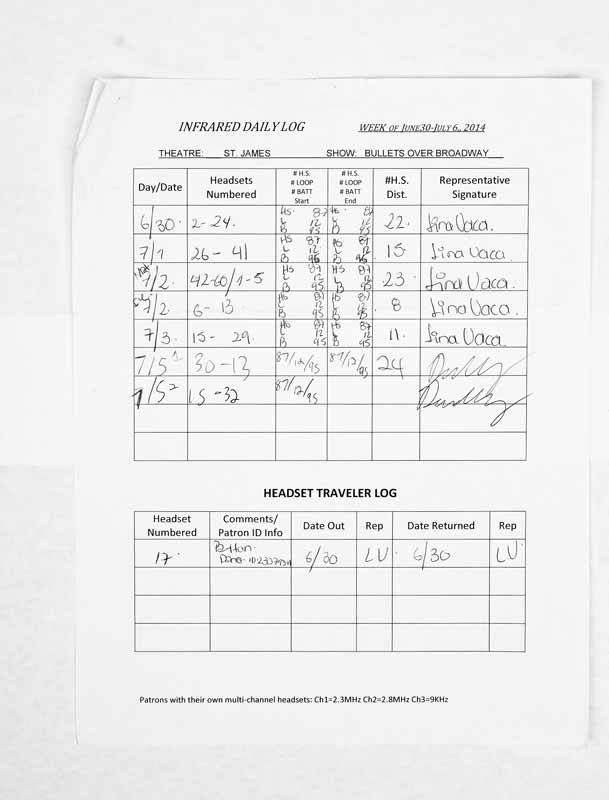 INFRARED DAILY LOG WEEK OF JUNE30-JULY 6., 2014
THEATRE: ST. JAMES SHOW: BULLETS OVER BROADWAY
Day/Date Headsets Numbered # H.S. # LOOP # BATT Start # H.S. # LOOP # BATT End #H.S. Dist. Representative Signature
6/30. 2-24. HS. 87 L 12 B 95 HS. 87 L 12 B 95 22. Lina Vaca.
7/1 26-41 HS 87 L 12 B 96 HS 87 L 12 B 96 15. Lina Vaca.
7/2. 42-60/1-5 HS 87 L 12 B 95 HS 87 L 12 B 95 23. Lina Vaca.
7/2 6-13. HS 87 L 12 B 95 HS 87 L 12 B 95 8 Lina Vaca.
7/3. 15-29. HS 87 L 12 B 95 HS 87 L 12 B 95 11. Lina Vaca.
7/5 1 30-13 87/12/95 87/12/95 24
7/5 2 15-32 87/12/95
HEADSET TRAVELER LOG
Headset Numbered Comments/ Patron ID Info Date Out Rep Date Returned Rep
17. 6/30 LV. 6/30 LV.
Patrons with their own multi-channel headsets: Ch1=2.3MHz Ch2=2.8MHz Ch3=9KHz